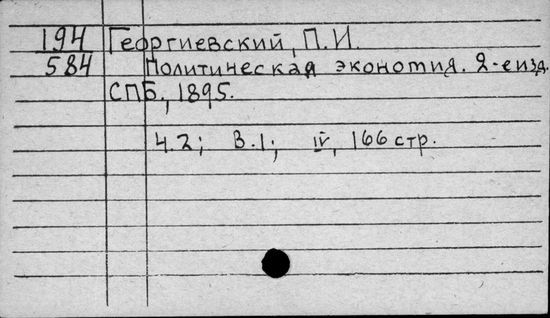 194 Георгиевский, П.И.
584 Политическая экономия. 2-е изд.
СПБ., 1895.
Ч.2; В.1; IV, 166 стр.